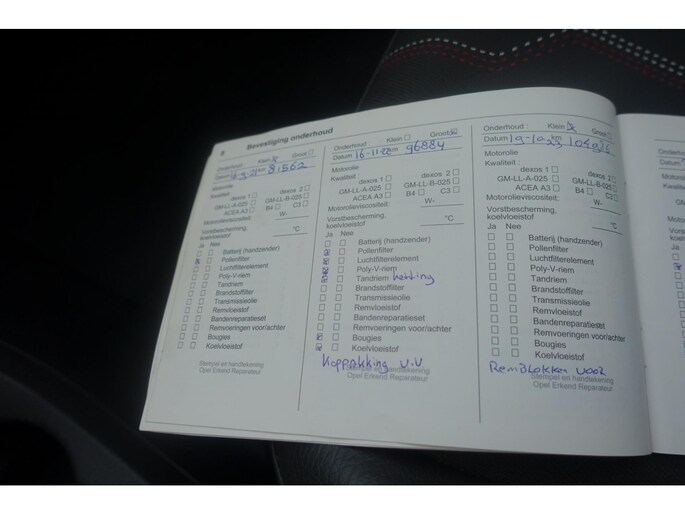 8 Bevestiging onderhoud
Onderhoud : Klein Groot
Datum km 81562
Motorolie
Kwaliteit :
dexos 1 dexos 2
GM-LL-A-025 GM-LL-B-025
ACEA A3 B4 C3
Motorolieviscositeit: W-
Vorstbescherming, koelvloeistof °C
Ja Nee
Batterij (handzender)
Pollenfilter
Luchtfilterelement
Poly-V-riem
Tandriem
Brandstoffilter
Transmissieolie
Remvloeistof
Bandenreparatieset
Remvoeringen voor/achter
Bougies
Koelvloeistof
Stempel en handtekening
Opel Erkend Reparateur
Onderhoud : Klein Groot
Datum 16-11-22 km 96884
Motorolie
Kwaliteit :
dexos 1 dexos 2
GM-LL-A-025 GM-LL-B-025
ACEA A3 B4 C3
Motorolieviscositeit: W-
Vorstbescherming,
koelvloeistof °C
Ja Nee
Batterij (handzender)
Pollenfilter
Luchtfilterelement
Poly-V-riem
Tandriem ketting
Brandstoffilter
Transmissieolie
Remvloeistof
Bandenreparatieset
Remvoeringen voor/achter
Bougies
Koelvloeistof
Koppakking v.v
Stempel en handtekening
Opel Erkend Reparateur
Onderhoud : Klein Groot
Datum 19-10-23 km
Motorolie
Kwaliteit :
dexos 1 dexos 2
GM-LL-A-025 GM-LL-B-025
ACEA A3 B4 C3
Motorolieviscositeit: W-
Vorstbescherming,
koelvloeistof °C
Ja Nee
Batterij (handzender)
Pollenfilter
Luchtfilterelement
Poly-V-riem
Tandriem
Brandstoffilter
Transmissieolie
Remvloeistof
Bandenreparatieset
Remvoeringen voor/achter
Bougies
Koelvloeistof
Remblokken voor
Stempel en handtekening
Opel Erkend Reparateur